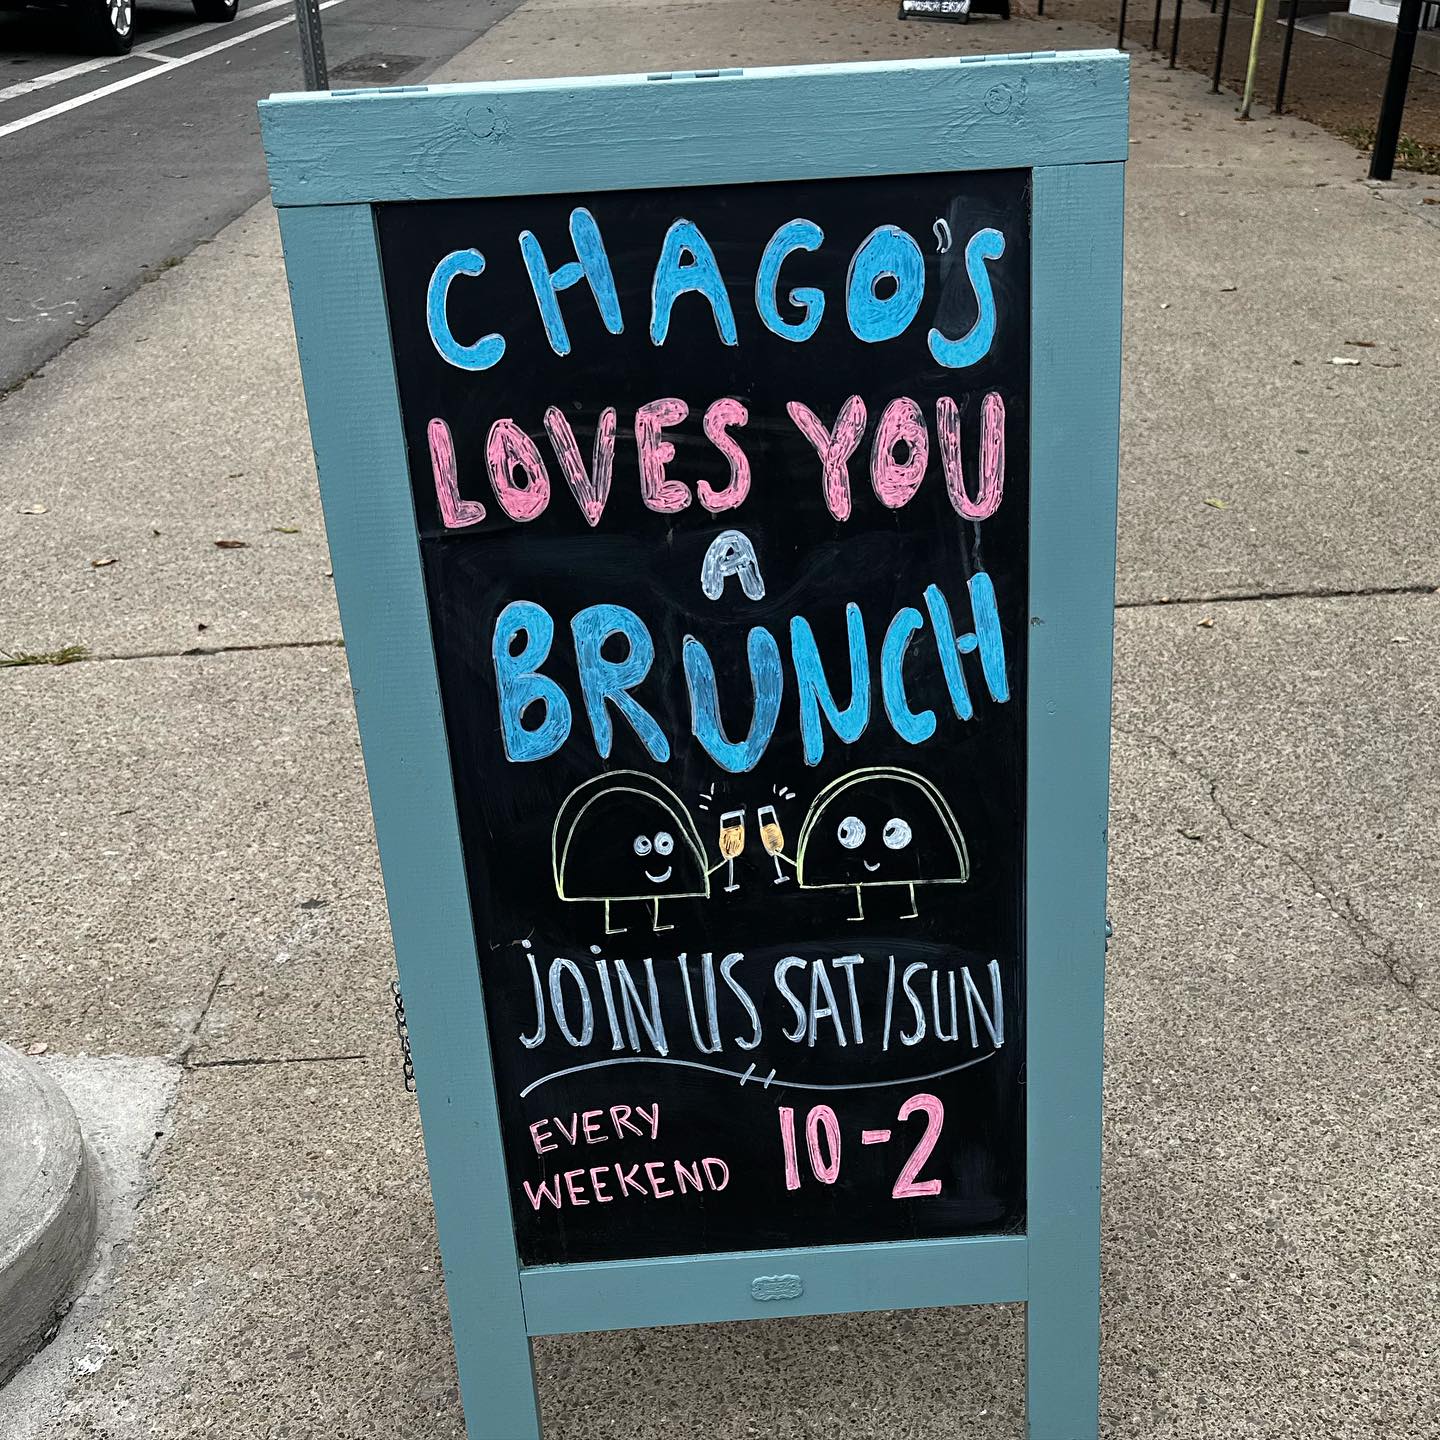 CHAGO'S
LOVES YOU
A
BRUNCH
JOiN US SAT/SUN
EVERY
WEEKEND
10-2